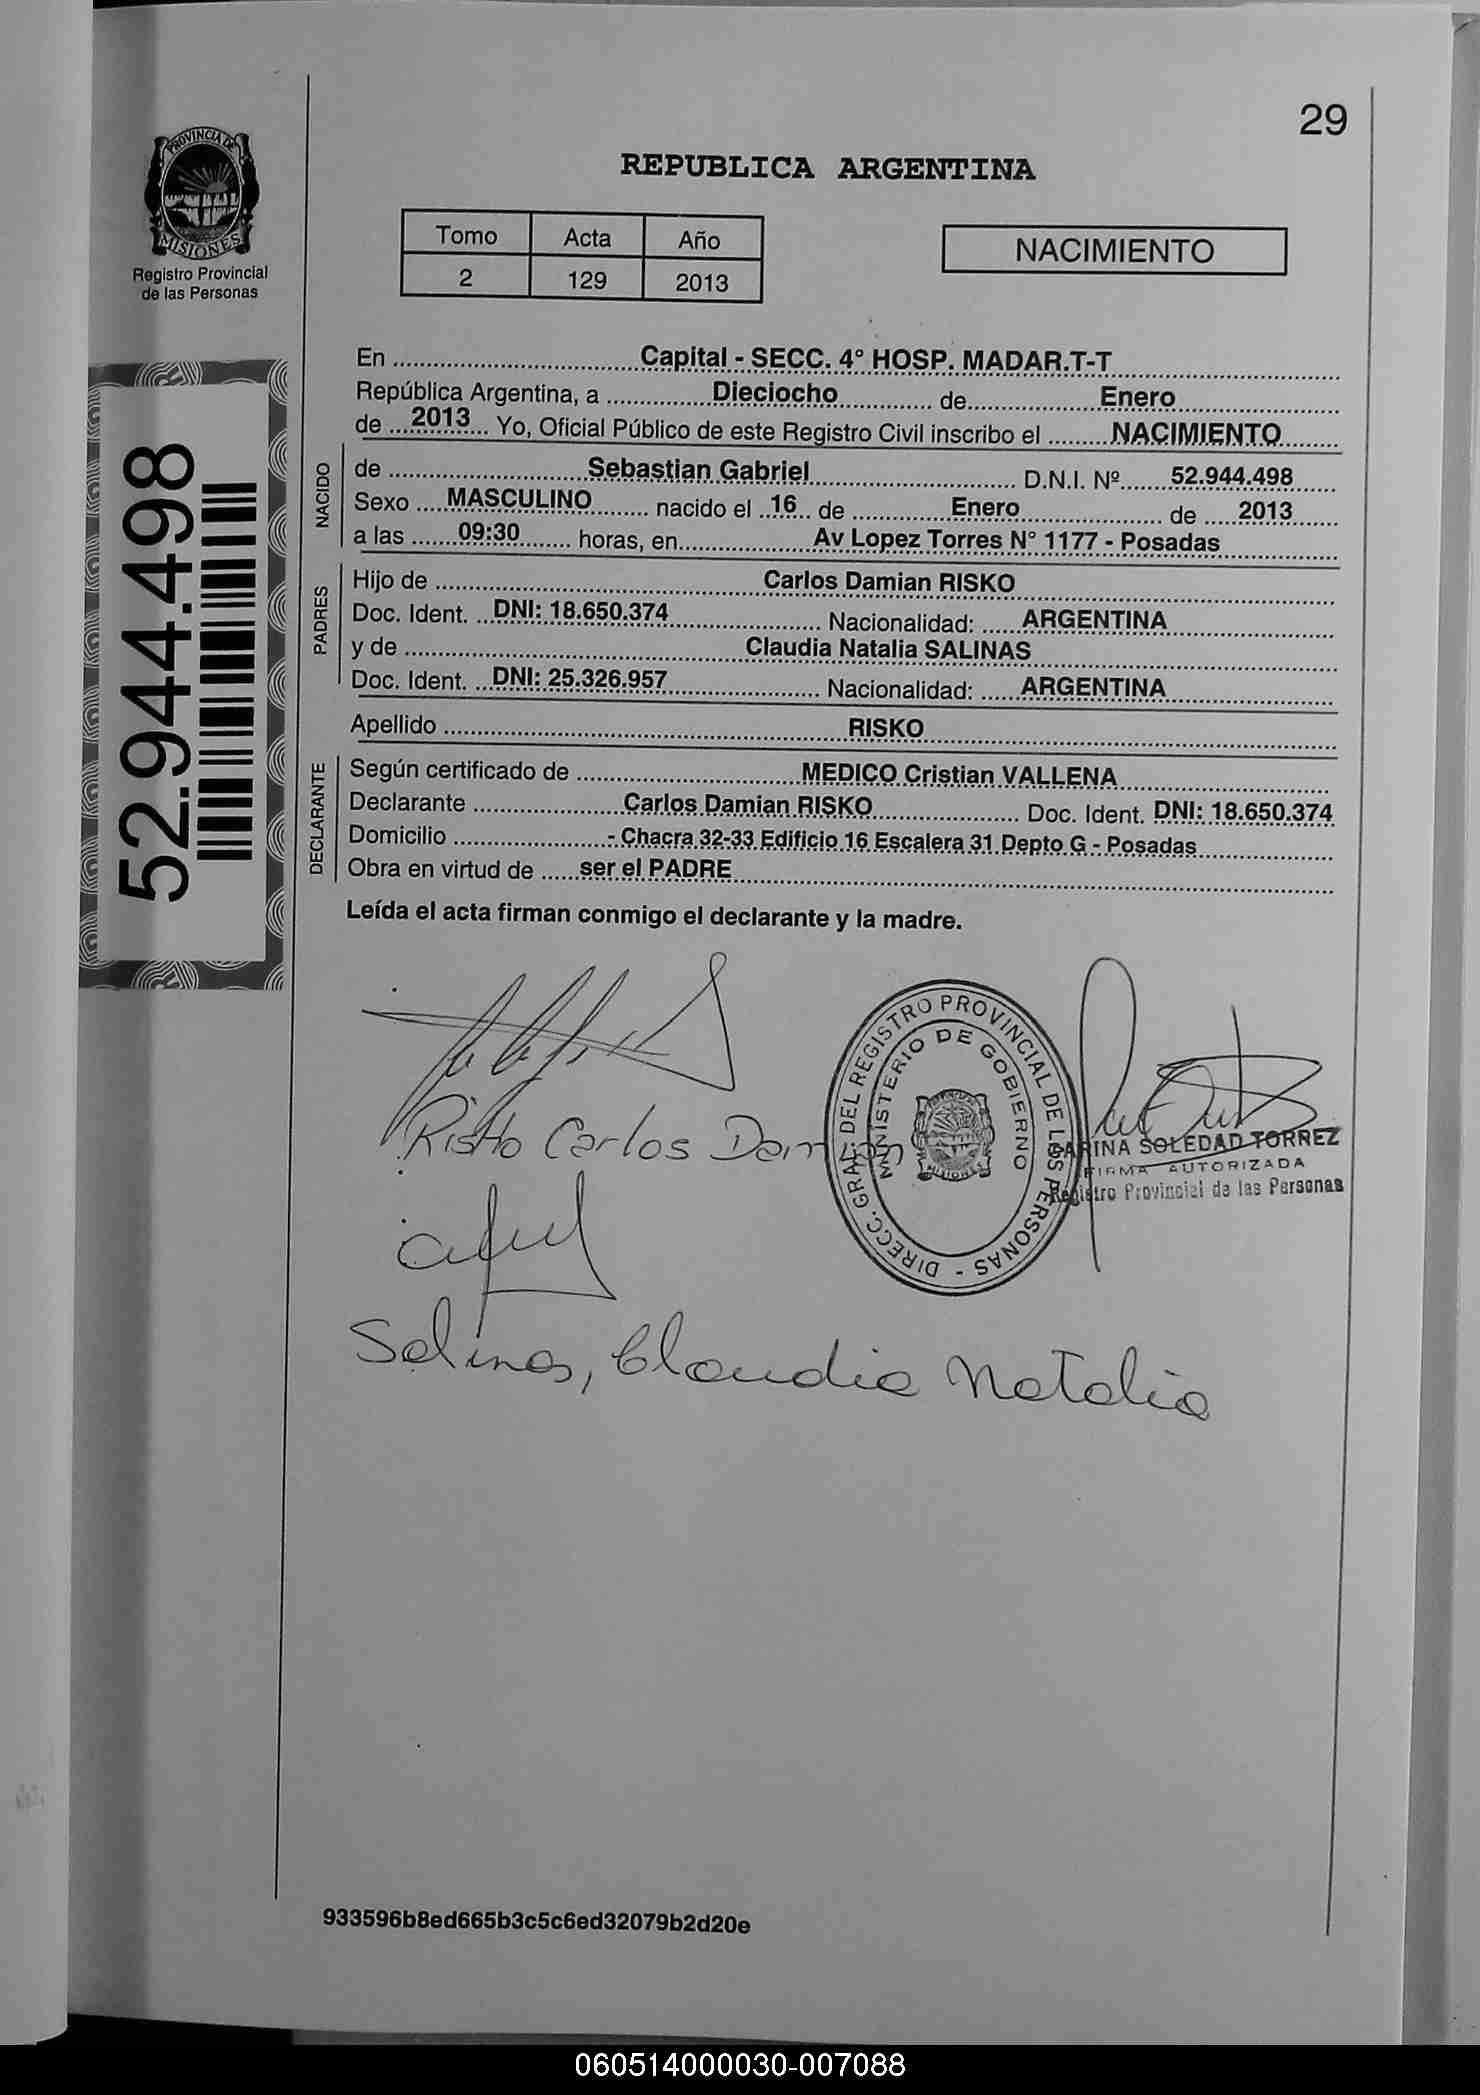 29
PROVINCIA DE
MISIONES
Registro Provincial
de las Personas
REPUBLICA ARGENTINA
Tomo Acta Año
2 129 2013
NACIMIENTO
52.944.498
En Capital - SECC. 4° HOSP. MADAR.T-T
República Argentina, a Dieciocho de Enero
de 2013 Yo, Oficial Público de este Registro Civil inscribo el NACIMIENTO
NACIDO
de Sebastian Gabriel D.N.I. Nº 52.944.498
Sexo MASCULINO nacido el 16 de Enero de 2013
a las 09:30 horas, en Av Lopez Torres N° 1177 - Posadas
PADRES
Hijo de Carlos Damian RISKO
Doc. Ident. DNI: 18.650.374 Nacionalidad: ARGENTINA
y de Claudia Natalia SALINAS
Doc. Ident. DNI: 25.326.957 Nacionalidad: ARGENTINA
Apellido RISKO
DECLARANTE
Según certificado de MEDICO Cristian VALLENA
Declarante Carlos Damian RISKO Doc. Ident. DNI: 18.650.374
Domicilio - Chacra 32-33 Edificio 16 Escalera 31 Depto G - Posadas
Obra en virtud de ser el PADRE
Leída el acta firman conmigo el declarante y la madre.
Risko Carlos Damian
DIRECC. GRAL. DEL REGISTRO PROVINCIAL DE LAS PERSONAS -
MINISTERIO DE GOBIERNO
MISIONES
SOLEDAD TORREZ
FIRMA AUTORIZADA
Registro Provincial de las Personas
Salinas, Claudia Natalia
933596b8ed665b3c5c6ed32079b2d20e
060514000030-007088